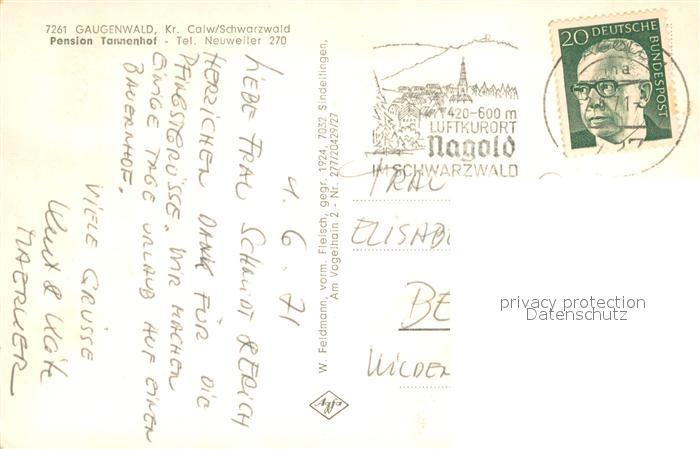 7261 GAUGENWALD, Kr. Calw/Schwarzwald
Pension Tannenhof - Tel. Neuweiler 270
4.6.71
LIEBE FRAU SCHMIDT
HERZICHEN DANK FÜR DIE
PFINGSTGRÜSSE. WIR MACHEN
EINIGE TAGE URLAUB AUF EINEM
BAUERNHOF.
VIELE GRÜSSE
W. Feldmann, vorm. Fleisch, gegr. 1924, 7032 Sindelfingen,
Am Vogelhain 2 - Nr. 277/20429/27
420-600 m
LUFTKURORT
Nagold
IM SCHWARZWALD
20 DEUTSCHE BUNDESPOST
FRAU
ELISAB
BE
WILDER
privacy protection
Datenschutz